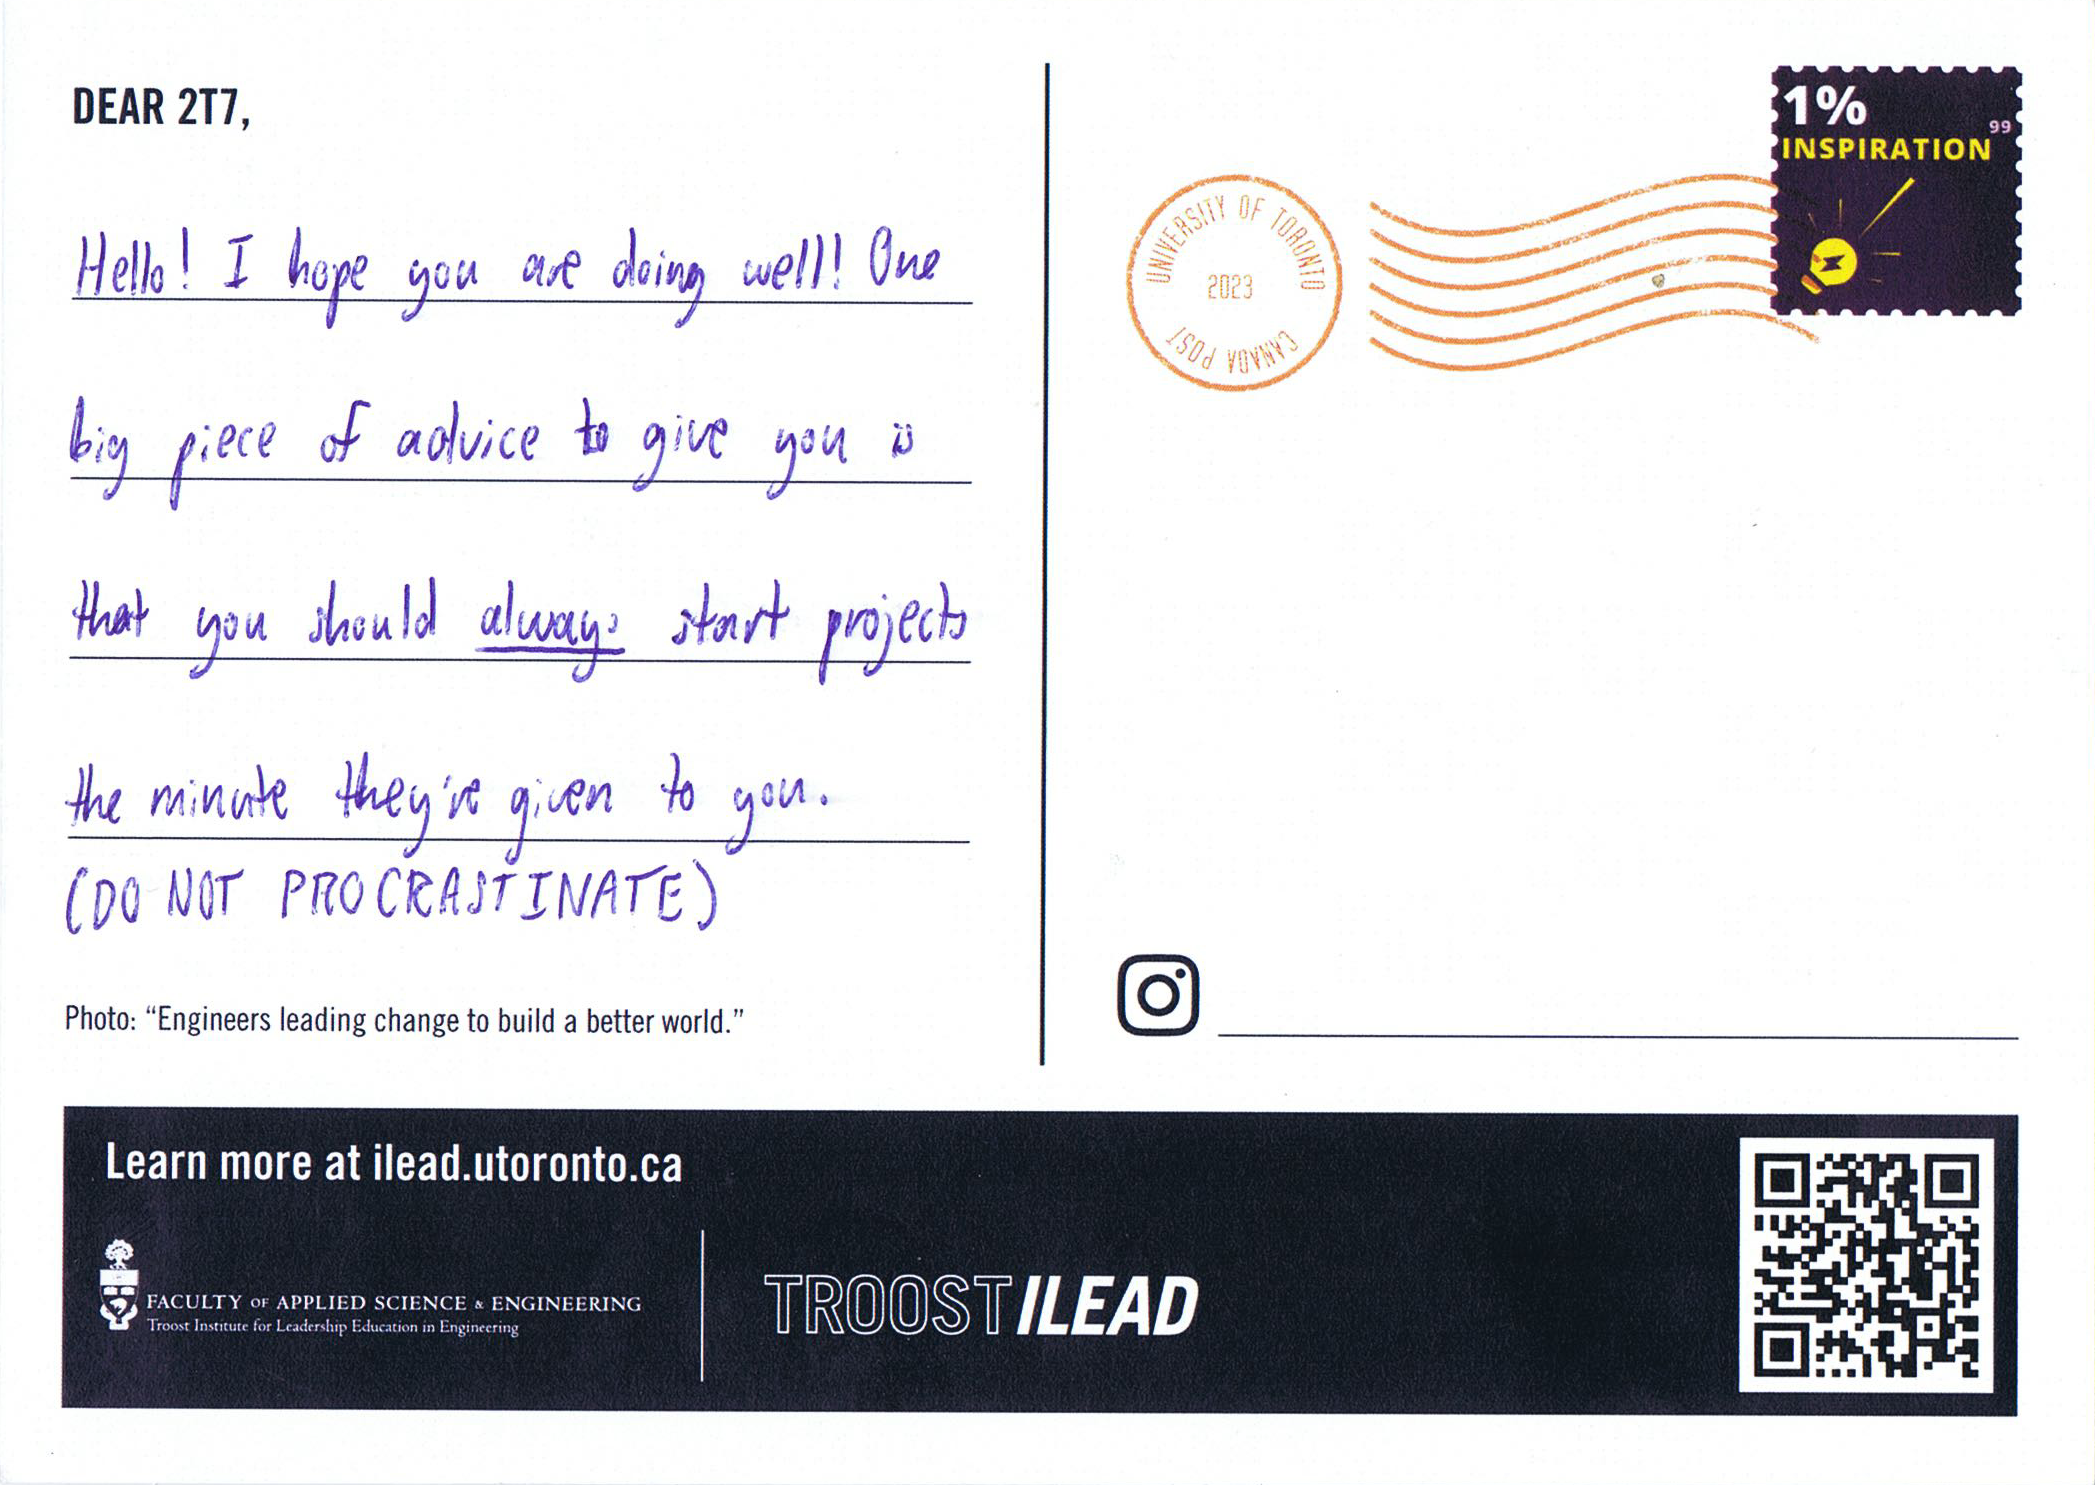 DEAR 2T7,
Hello! I hope you are doing well! One
big piece of advice to give you is
that you should always start projects
the minute they're given to you.
(DO NOT PROCRASTINATE)
Photo: “Engineers leading change to build a better world.”
UNIVERSITY OF TORONTO
2023
CANADA POST
1%
99
INSPIRATION
Learn more at ilead.utoronto.ca
FACULTY OF APPLIED SCIENCE & ENGINEERING
Troost Institute for Leadership Education in Engineering
TROOST ILEAD